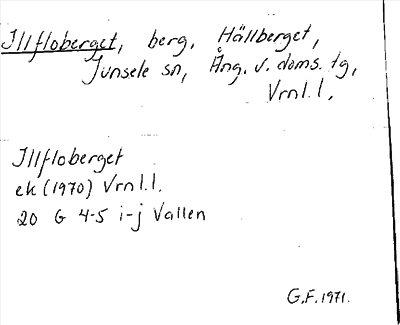 Illfloberget, berg, Hällberget,
Junsele sn, Ång. v. doms. tg,
Vrnl. l.
Illfloberget
ek (1970) Vrnl. l.
20 G 4-5 i-j Vallen
G.F. 1971.